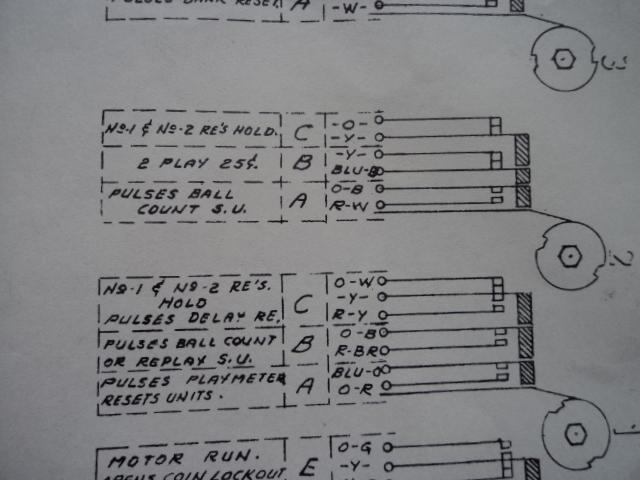 PULSES BANK RESET. A -W-
3
Nº-1 & Nº-2 RE'S HOLD. C -O-
-Y-
2 PLAY 25¢. B -Y-
BLU-B
PULSES BALL A O-B
COUNT S.U. R-W
2
Nº-1 & Nº-2 RE'S. C O-W
HOLD -Y-
PULSES DELAY RE. R-Y
PULSES BALL COUNT B O-B
OR REPLAY S.U. R-BR
PULSES PLAYMETER A BLU-O
RESETS UNITS. O-R
1
MOTOR RUN. E O-G
OPENS COIN LOCKOUT -Y-